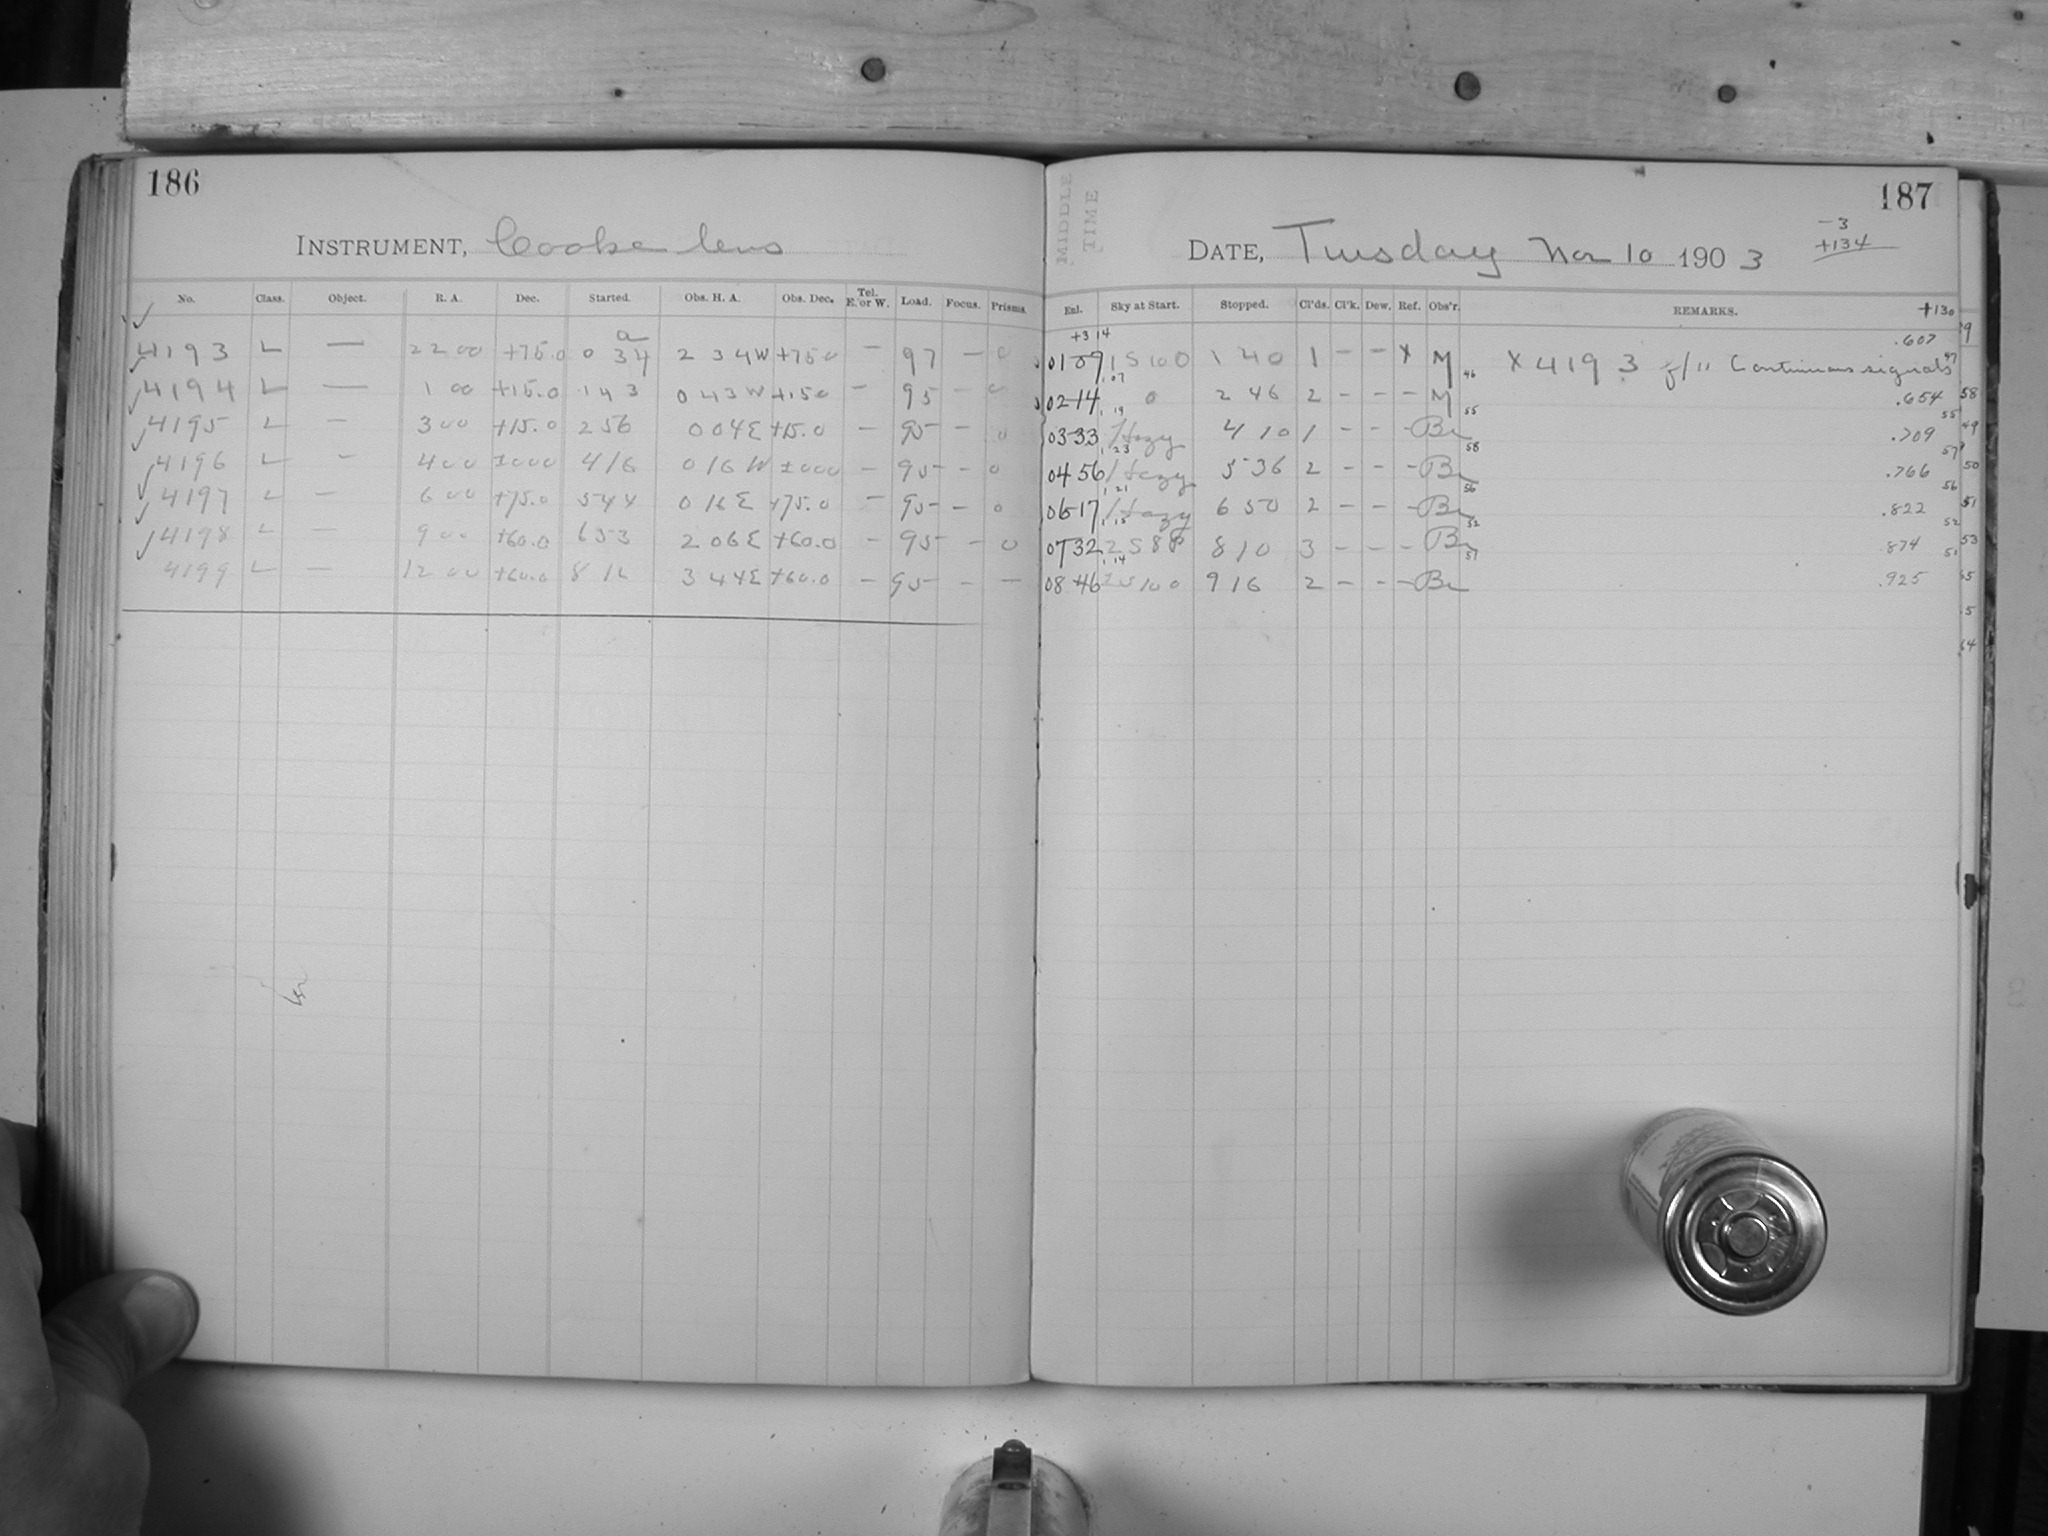 186
INSTRUMENT, Cooke lens
No. Class. Object. R. A. Dec. Started. Obs. H. A. Obs. Dec. Tel. E. or W. Load. Focus. Prisms.
a
4193 L — 22 00 +75.0 0 34 2 34 W +75 0 — 97 — 0
4194 L — 1 00 +15.0 1 43 0 43 W +15 0 — 95 — 0
4195 L — 3 00 +15.0 2 56 0 04 E +15.0 — 95 — 0
4196 L — 4 00 ±000 4 16 0 16 W ±000 — 95 — 0
4197 L — 6 00 +75.0 5 44 0 16 E +75.0 — 95 — 0
4198 L — 9 00 +60.0 6 53 2 06 E +60.0 — 95 — 0
4199 L — 12 00 +60.0 8 16 3 44 E +60.0 — 95 — —
MIDDLE TIME
187
-3
+134
DATE, Tuesday Nov 10 1903
Enl. Sky at Start. Stopped. Cl'ds. Cl'k. Dew. Ref. Obs'r. REMARKS. +130
+3 14
.607
01 09 1 S 100 1 40 1 — — X M 46 X 4193 f/11 Continuous signals 47
1 07
02 14 0 2 46 2 — — — M 55 .654 55
1 19
03 33 Hazy 4 10 1 — — — Br 58 .709 57
1 23
04 56 Hazy 5 36 2 — — — Br 56 .766 56
1 21
06 17 Hazy 6 50 2 — — — Br 52 .822 52
1 15
07 32 2 S 88 8 10 3 — — — Br 51 .874 51
1 14
08 46 2 S 100 9 16 2 — — — Br .925